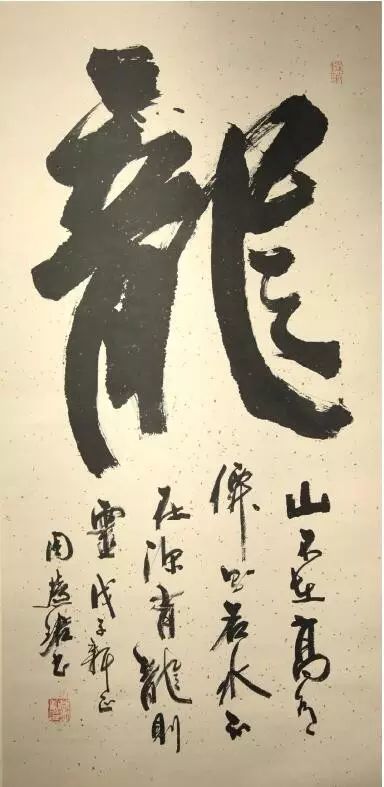 龍
山不在高有
僊則名水不
在深有龍則
靈戊子新正
周慧珺書